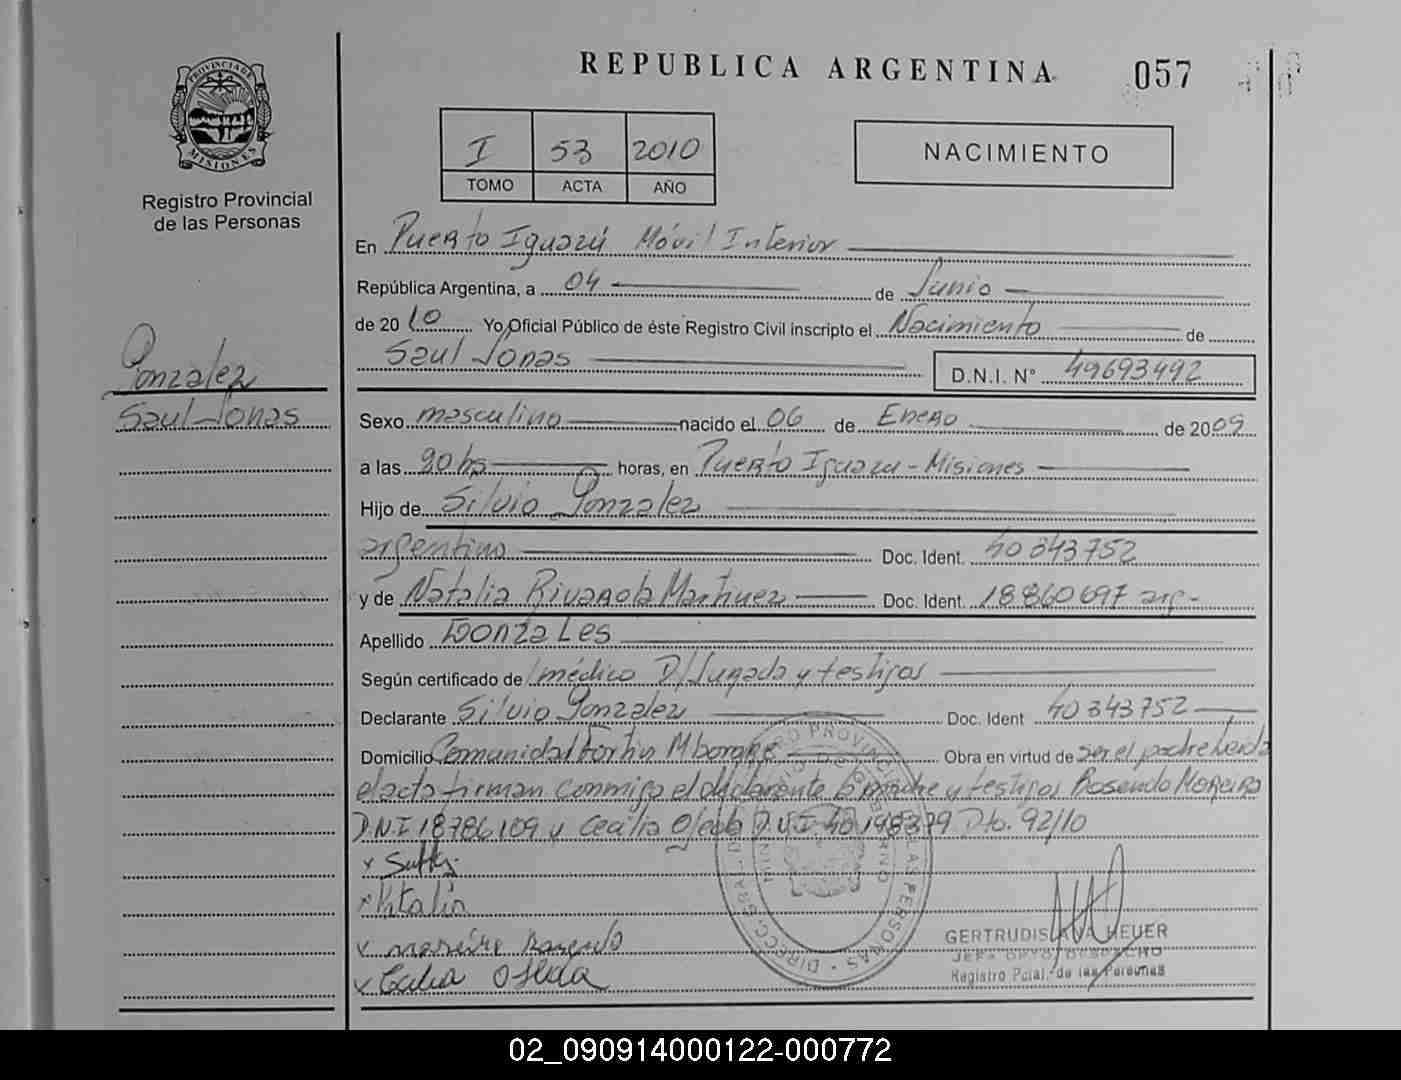 PROVINCIA DE
MISIONES
Registro Provincial
de las Personas
Gonzalez
Saul Jonas
REPUBLICA ARGENTINA
057
I 53 2010
TOMO ACTA AÑO
NACIMIENTO
En Puerto Iguazú Móvil Interior
República Argentina, a 04 de Junio
de 20 10 Yo, Oficial Público de éste Registro Civil inscripto el Nacimiento de
Saul Jonas
D.N.I. N° 49693492
Sexo masculino nacido el 06 de Enero de 2009
a las 20 hs horas, en Puerto Iguazu - Misiones
Hijo de Silvio Gonzalez
argentino Doc. Ident. 40 343 752
y de Natalia Rivarola Martinez Doc. Ident. 18860697 arg-
Apellido Gonzales
Según certificado de médico D/Jurada y testigos
Declarante Silvio Gonzalez Doc. Ident 40 343752
Domicilio Comunidad Fortin Mborore Obra en virtud de ser el padre leida
el acta firman conmigo el declarante la madre y testigos Rosendo Moreira
D.N.I 18786109 y Cecilia Ojeda D.N.I 40 148379 Dto. 92/10
x
x Natalia
x
x
GERTRUDIS HEUER
JEFA DPTO. DESPACHO
Registro Pcial. de las Personas
02_090914000122-000772